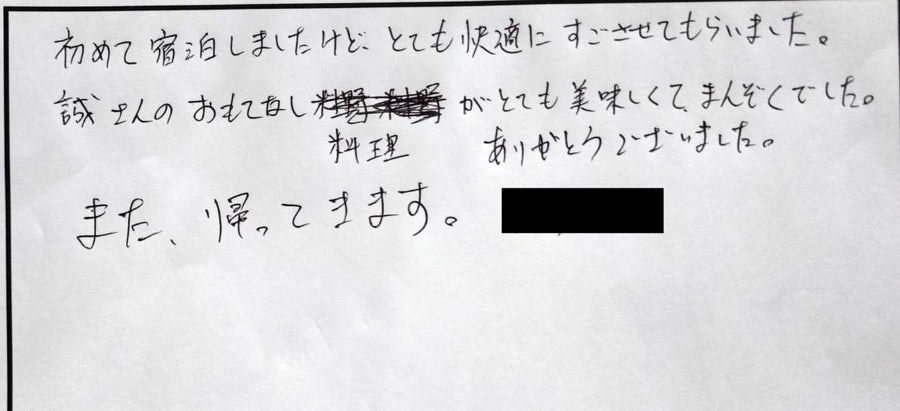 初めて宿泊しましたけど、とても快適にすごさせてもらいました。
誠さんのおもてなし がとても美味しくて、まんぞくでした。
料理 ありがとうございました。
また、帰ってきます。